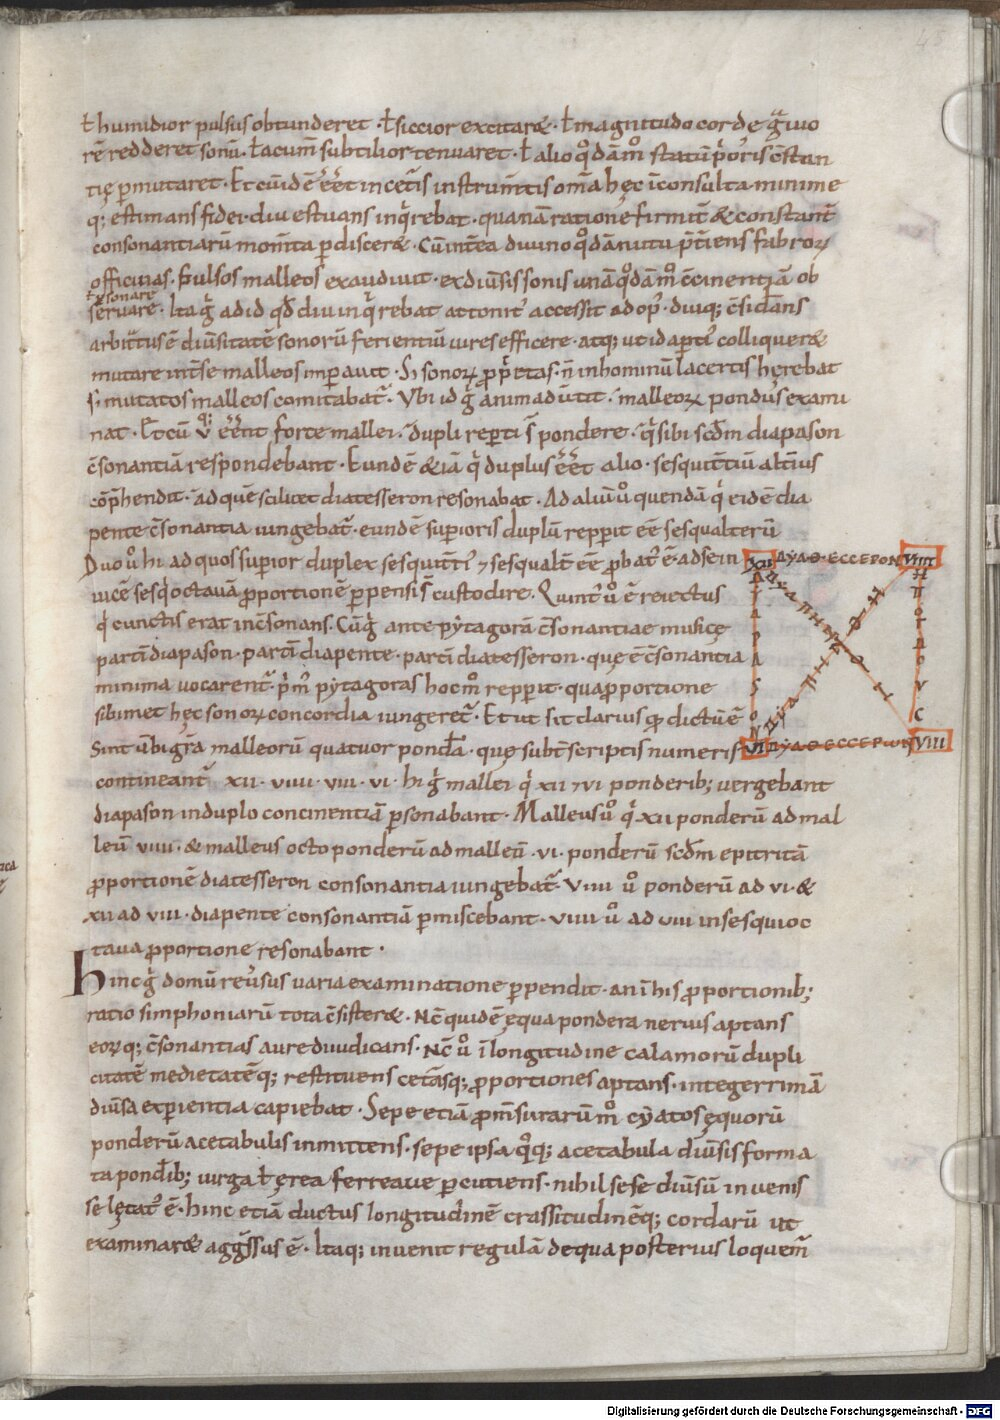 45
ł humidior pulsus obtunderet · ł siccior excitaret · ł magnitudo corde g̃uio
rē redderet sonū · ł acumē subtilior tenuaret · ł alio q̊dām̊ statū p̄oris c̄stan
tię p̄mutaret · Et cū idē ēēt in cet̄is instrum̄tis om̄a hęc īconsulta minime
q; estimans fidei · diu estuans inq̇rebat · quanam ratione firmit̄ & constant̄
consonantiarū mom̄ta p̄disceret · Cū int̄ea diuino q̊dā nutu p̄t̄iens fabroꝝ
officinas · Pulsos malleos exaudiuit · ex diūsis sonis unā q̊dām̊ c̄cinentiā ob
ł ꝑsonare
seruare · Itaq̇ ad id qđ diu inq̇rebat attonit' accessit ad op' · diuq; c̄sid̄ans
arbit̄tus ē diūsitatē sonorū ferientiū uires efficere · atq; ut id apt̄i' colliqueret
mutare int̄ se malleos imp̄auit · Sꝫ sonoꝝ p̄p̄etas · n̄ in hominū lacertis hęrebat
s; mutatos malleos comitabat̄ · Ubi id g̊ animaduertit · malleoꝝ pondus exami
nat · Et cū v̊ ēēnt forte mallei · dupli rep̄ti s̄ pondere · q̇ sibi scđm diapason
c̄sonantiā respondebant · Eundē & iā q̇ duplus ēēt alio · sesquit̄tiū alt̄ius
cōp̄hendit · ad quē scilicet diatesseron resonabat · Ad aliū ů quendā q̇ eidē dia
pente c̄sonantia iungebat̄ · eundē sup̄ioris duplū repp̄it ēē sesqualterū
Duo ů hi ad quos sup̄ior duplex sesquit̄ti' ⁊ sesqualt̄ ēē p̄bat' ē · ad se in
uicē sesq̇octauā p̄portionē p̄pensi s̄ custodire · Quint' ů ē reiectus
q̇ cunctis erat inc̄sonans · Cū g̊ ante pẏtagorā c̄sonantiae musicę
partī diapason · partī diapente · partī diatesseron · quę ē c̄sonantia
minima uocarent̄ · p̄m̊ pẏtagoras hoc m̊ repp̄it · qua p̄portione
sibimet hęc sonoꝝ concordia iungeret̄ · Et ut sit clarius qđ dictū ē
Sint ūbi gr̄a malleorū quatuor pond̄a · quę subt̄scriptis numeris
contineant̄ · XII · VIIII · VIII · VI · hi g̊ mallei q̇ XII ⁊ VI ponderib; uergebant
diapason in duplo concinentiā p̄sonabant · Malleus ů q̇ XII ponderū ad mal
leū VIIII · & malleus octo ponderū ad malleū · VI · ponderū scđm epitritā
p̄portionē diatesseron consonantia iungebat̄ · VIIII ů ponderū ad VI · &
XII ad VIII · diapente consonantiā p̄miscebant · VIIII ů ad VIII in sesquioc
taua p̄portione resonabant ·
Hinc g̊ domū reūsus uaria examinatione p̄pendit · an ī his p̄portionib;
ratio simphoniarū tota c̄sisteret · Nc̄ quidē ęqua pondera neruis aptans
eoꝝq; c̄sonantias aure diiudicans · Nc̄ ů ī longitudine calamorū dupli
citatē medietatēq; restituens cet̄asq; p̄portiones aptans · integerrimā
diūsa exp̄ientia capiebat · Sepe etiā p̄ m̄surarū m̊ cẏatos ęquorū
ponderū acetabulis inmittens · sepe ipsa q̊q; acetabula diūsis forma
ta pond̄ib; uirga ł ęrea ferreaue p̄cutiens · nihil sese diūsū inuenis
se lętat' ē · hinc etiā ductus longitudinē crassitudinēq; cordarū ut
examinaret aggr̄ssus ē · Itaq; inuenit regulā de qua posterius loquem̄
XII
VIIII
VI
VIII
Digitalisierung gefördert durch die Deutsche Forschungsgemeinschaft - DFG